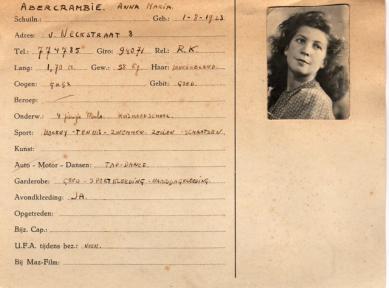 ABERCRAMBIE. ANNA MARIA.
Schuiln.: Geb.: 1-8-1923
Adres: v. NECKSTRAAT 8
Tel.: 774785 Giro: 94071 Rel.: R.K.
Lang: 1,70 m Gew.: 58 Kg Haar: DONKERBLOND
Oogen: GRIJS Gebit: GOED.
Beroep:
Onderw.: 4 jarige Mulo.
Sport: HOCKEY - TENNIS - ZWEMMEN - ZEILEN - SCHAATSEN.
Kunst:
Auto - Motor - Dansen: TAP-DANCE.
Garderobe: GOED - SPORTKLEEDING - WANDELKLEEDING.
Avondkleeding: JA.
Opgetreden:
Bijz. Cap.:
U.F.A. tijdens bez.: NEEN.
Bij Maz-Film: